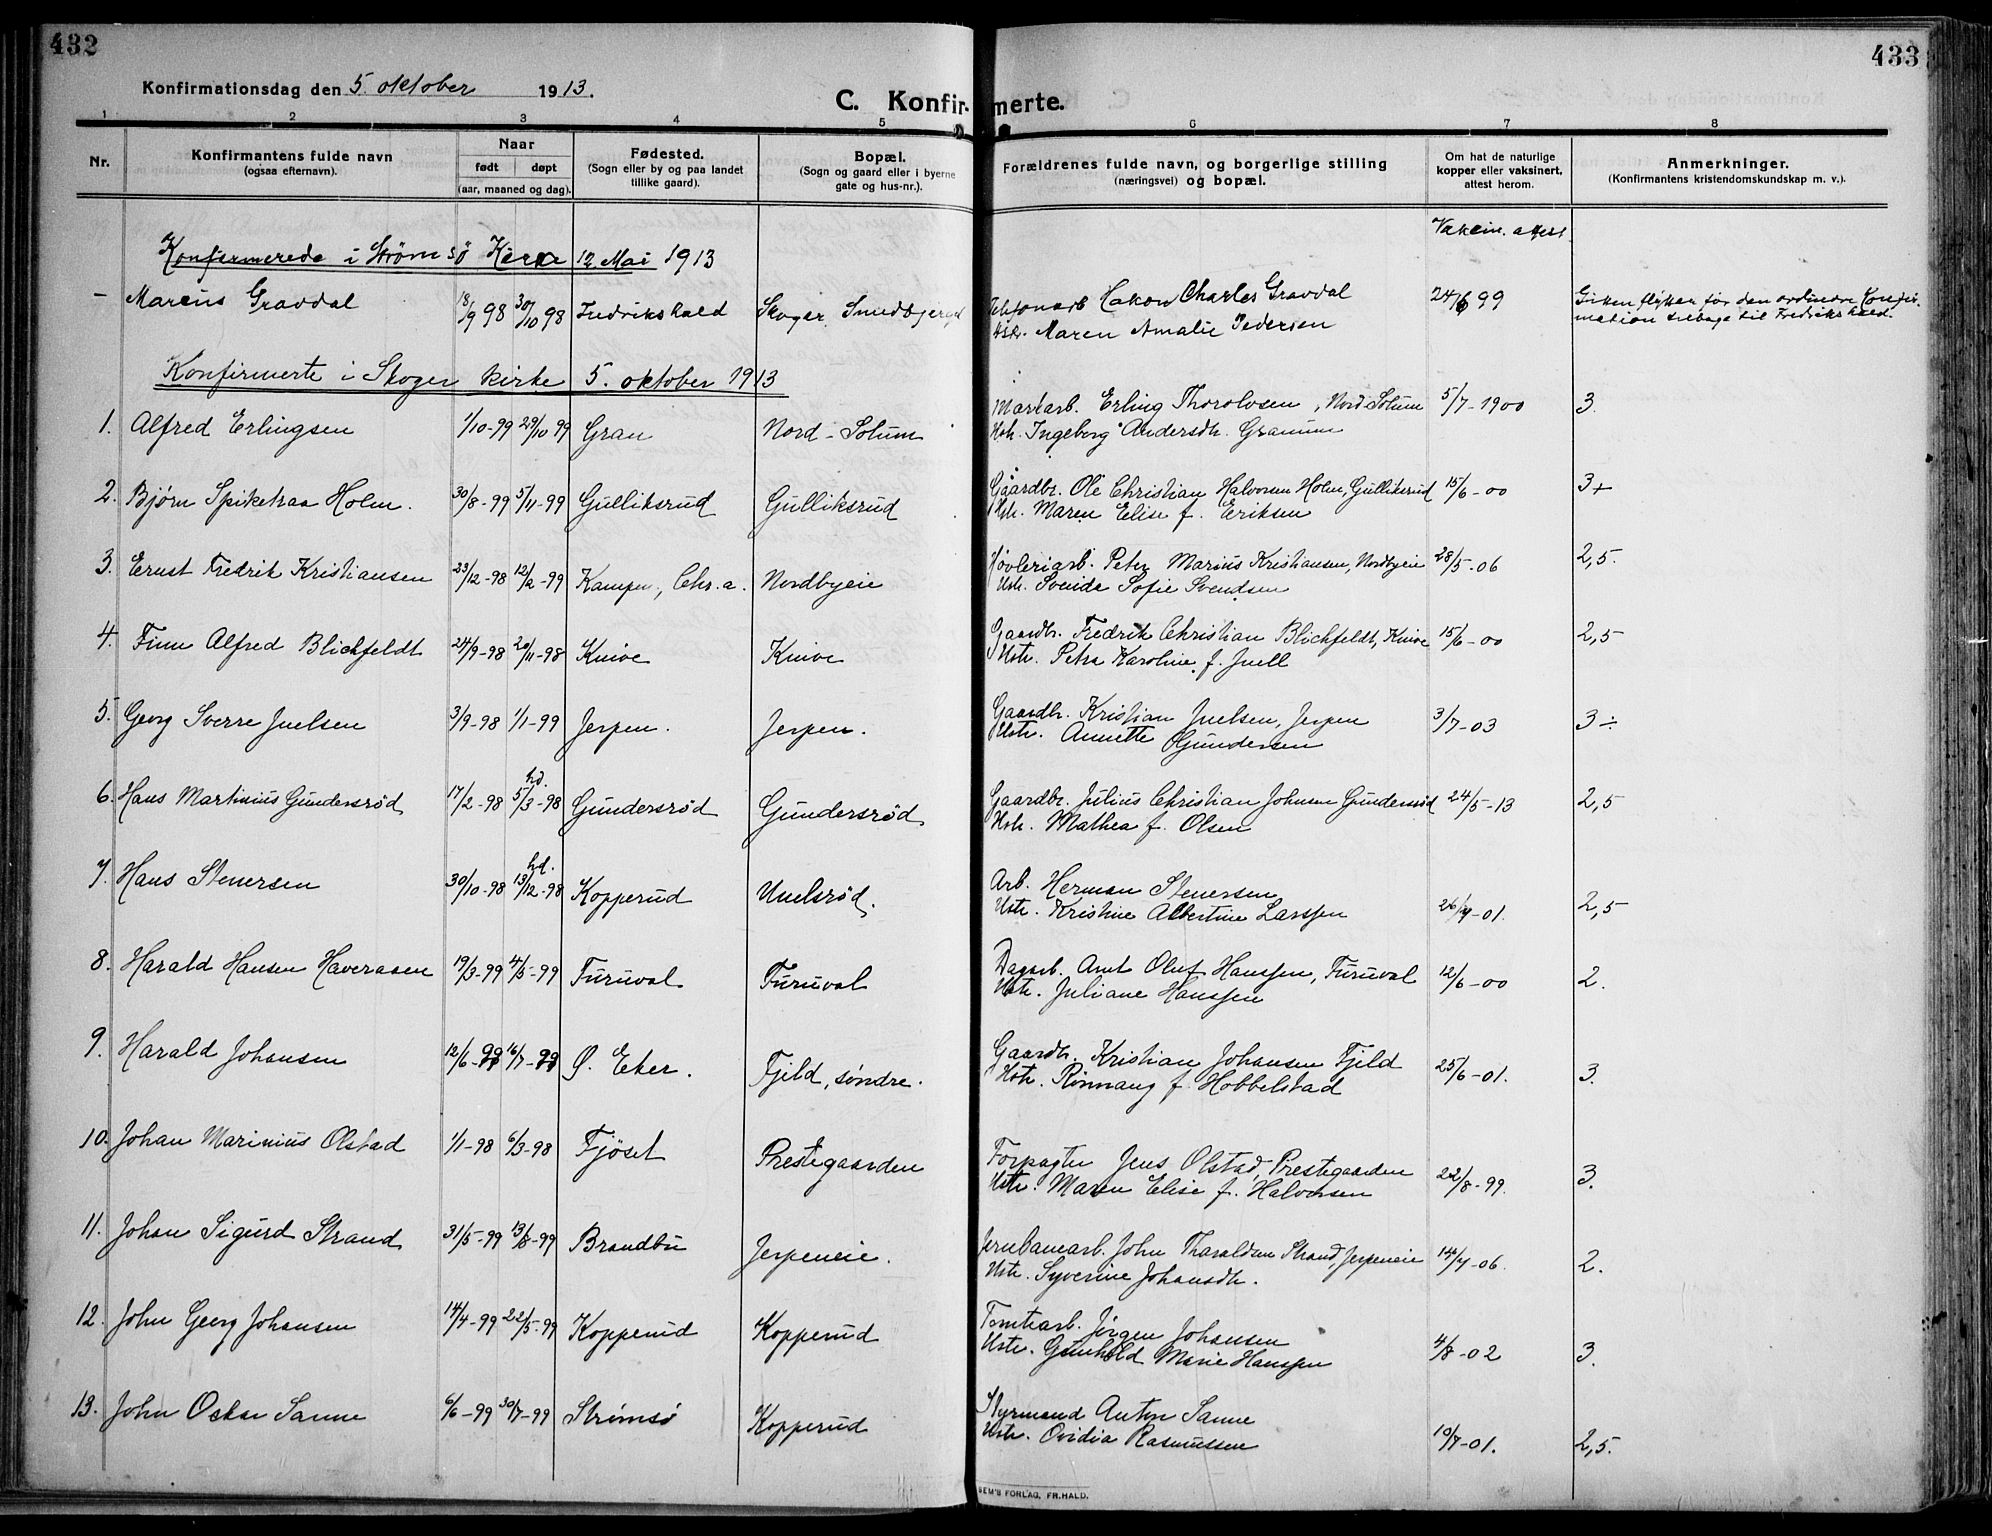 432
433
Konfirmationsdag den 5. oktober 1913.
C. Konfirmerte.
1 2 3 4 5 6 7 8
Nr.
Konfirmantens fulde navn
(ogsaa efternavn).
Naar
født døpt
(aar, maaned og dag).
Fødested.
(Sogn eller by og paa landet
tillike gaard).
Bopæl.
(Sogn og gaard eller i byerne
gate og hus-nr.).
Forældrenes fulde navn, og borgerlige stilling
(næringsvei) og bopæl.
Om hat de naturlige
kopper eller vaksinert,
attest herom.
Anmerkninger.
(Konfirmantens kristendomskundskap m. v.).
Vakcin. attest
Konfirmerede i Strømsö Kirke 12. Mai 1913
– Marcus Gravdal 18/9 98 30/10 98 Fredrikshald Skoger Telefonarb Hakon Charles Gravdal 24/6 99
Hstr. Maren Amalie Pedersen
flytter før den ordinære Konfir-
mation tilbage til Fredrikshald.
Konfirmerte i Skoger kirke 5. oktober 1913
1. Alfred Erlingsen 1/10-99 29/10 99 Gran Nord-Solum Markarb. Erling Thorolvsen, Nord-Solum 5/7-1900 3.
Hstr. Ingeborg Andersdtr. Granum
2. Bjørn Spiketraa Holm. 30/8-99 5/11-99 Gulliksrud Gulliksrud Gaardbr. Ole Christian Halvorsen Holm, Gulliksrud 15/6-00 3+
Hstr. Maren Elise f. Eriksen
3. Ernst Fredrik Kristiansen 23/12-98 12/2-99 Kampen, Chr.a. Nordbyeie Høvleriarb. Peter Marius Kristiansen, Nordbyeie 28/5-06 2,5.
Hstr. Svende Sofie Svendsen
4. Finn Alfred Blichfeldt 24/9-98 20/11-98 Knive Knive Gaardbr. Fredrik Christian Blichfeldt, Knive 15/6-00 2,5
Hstr. Petra Karoline f. Juell
5. Georg Sverre Juelsen 3/9-98 1/1-99 Jerpen. Jerpen. Gaardbr. Kristian Juelsen, Jerpen 3/7-03 3÷
Hstr. Annette Gundersen
6. Hans Martinius Gundersrød 17/2-98 hd. 5/3-98 Gundersrød Gundersrød Gaardbr. Julius Christian Johnsen Gundersrød 24/5-13 2,5
Hstr. Mathea f. Olsen
7. Hans Stenersen 30/10-98 hd. 13/12-98 Kopperud Unelsrød. Arb. Herman Stenersen 26/4-01. 2,5
Hstr. Kristine Albertine Larssen
8. Harald Hansen Haveraaen 19/3-99 4/5-99 Furuval Furuval Dagarb. Arnt Oluf Hanssen, Furuval 12/6-00 2.
Hstr. Juliane Hanssen
9. Harald Johansen 12/6-99 16/7-99 Ø. Eker. Fjeld, søndre. Gaardbr. Kristian Johansen Fjeld 25/6-01. 3.
Hstr. Rønnaug f. Hobbelstad
10. Johan Marinius Olstad 1/1-98 6/3-98 Fjöset Prestegaarden Forpagter Jens Olstad, Prestegaarden 22/8-99. 3.
Hstr. Maren Elise f. Halvorsen
11. Johan Sigurd Strand 31/5-99 13/8-99 Brandbu Jerpeneie. Jernbanearb. John Tharaldsen Strand, Jerpeneie 14/4-06. 2.
Hstr. Syverine Johansdtr.
12. John Georg Johansen 14/4-99 22/5-99 Kopperud Kopperud Tomtearb. Jørgen Johansen 4/8-02 3.
Hstr. Gunhild Marie Hanssen
13. John Oskar Sanne 6/6-99 30/7-99 Strømsø Kopperud Styrmand Anton Sanne 10/7-01. 2,5.
Hstr. Ovidia Rasmussen
SEM'S FORLAG, FR.HALD.